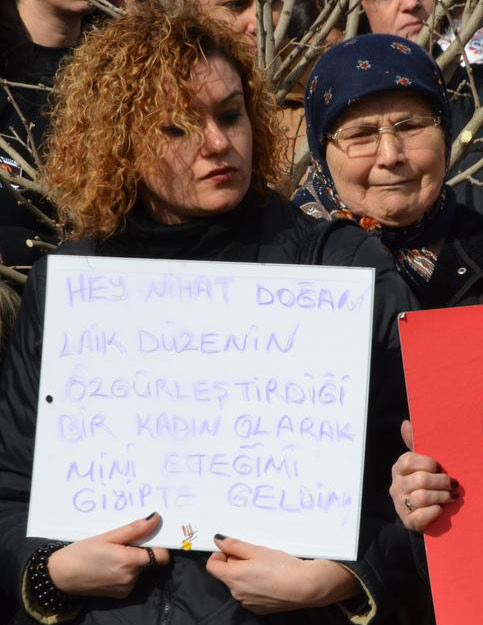 HEY NİHAT DOĞAN
LAİK DÜZENİN
ÖZGÜRLEŞTİRDİĞİ
BİR KADIN OLARAK
MİNİ ETEĞİMİ
GİYİPTE GELDİM